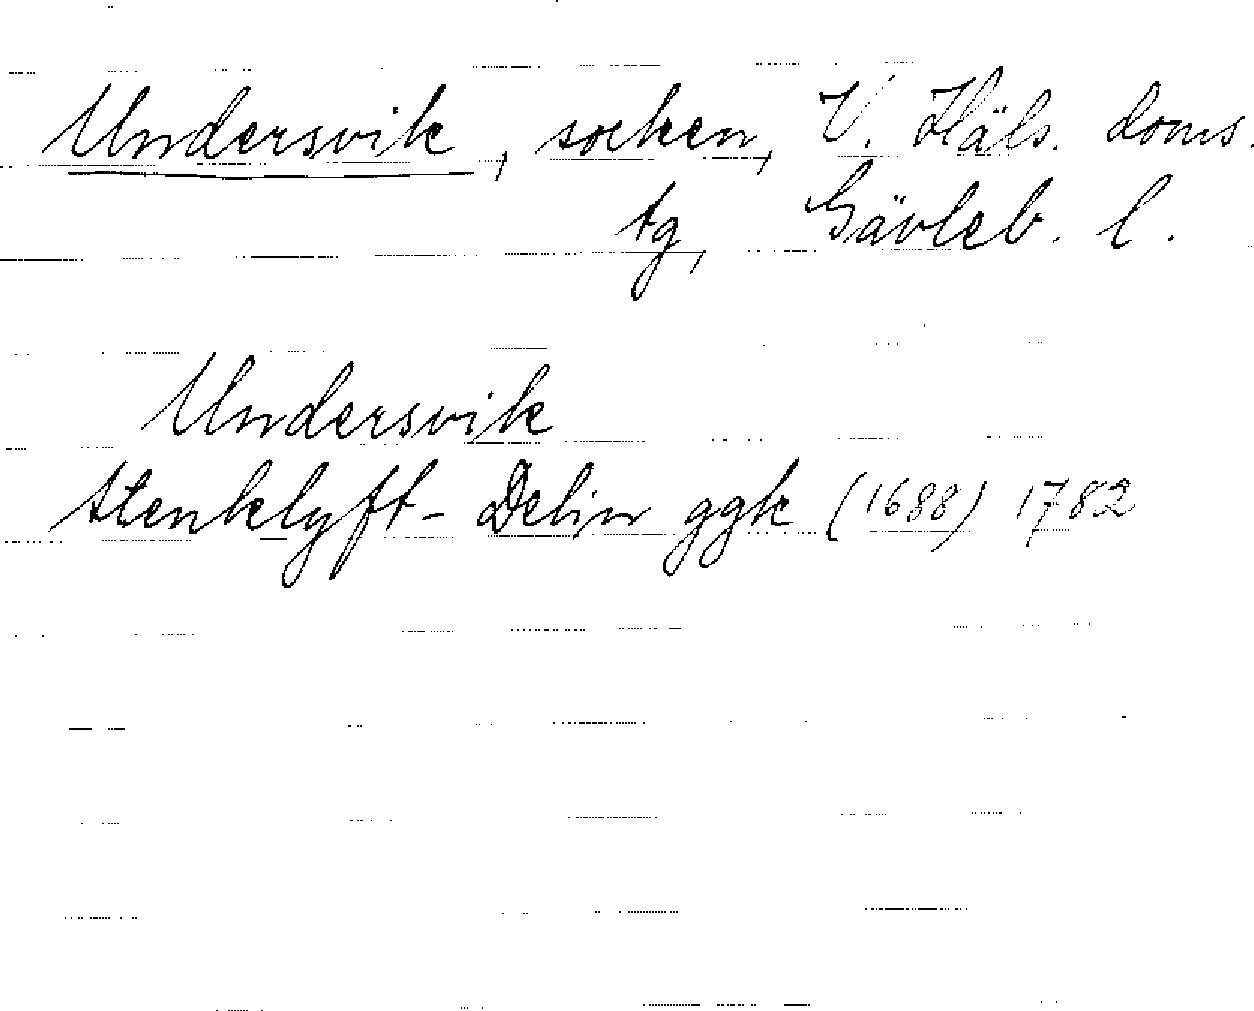 Undersvik, socken, V. Häls. doms.
tg, Gävleb. l.
Undersvik
Stenklyft- Delin ggk (1688) 1782